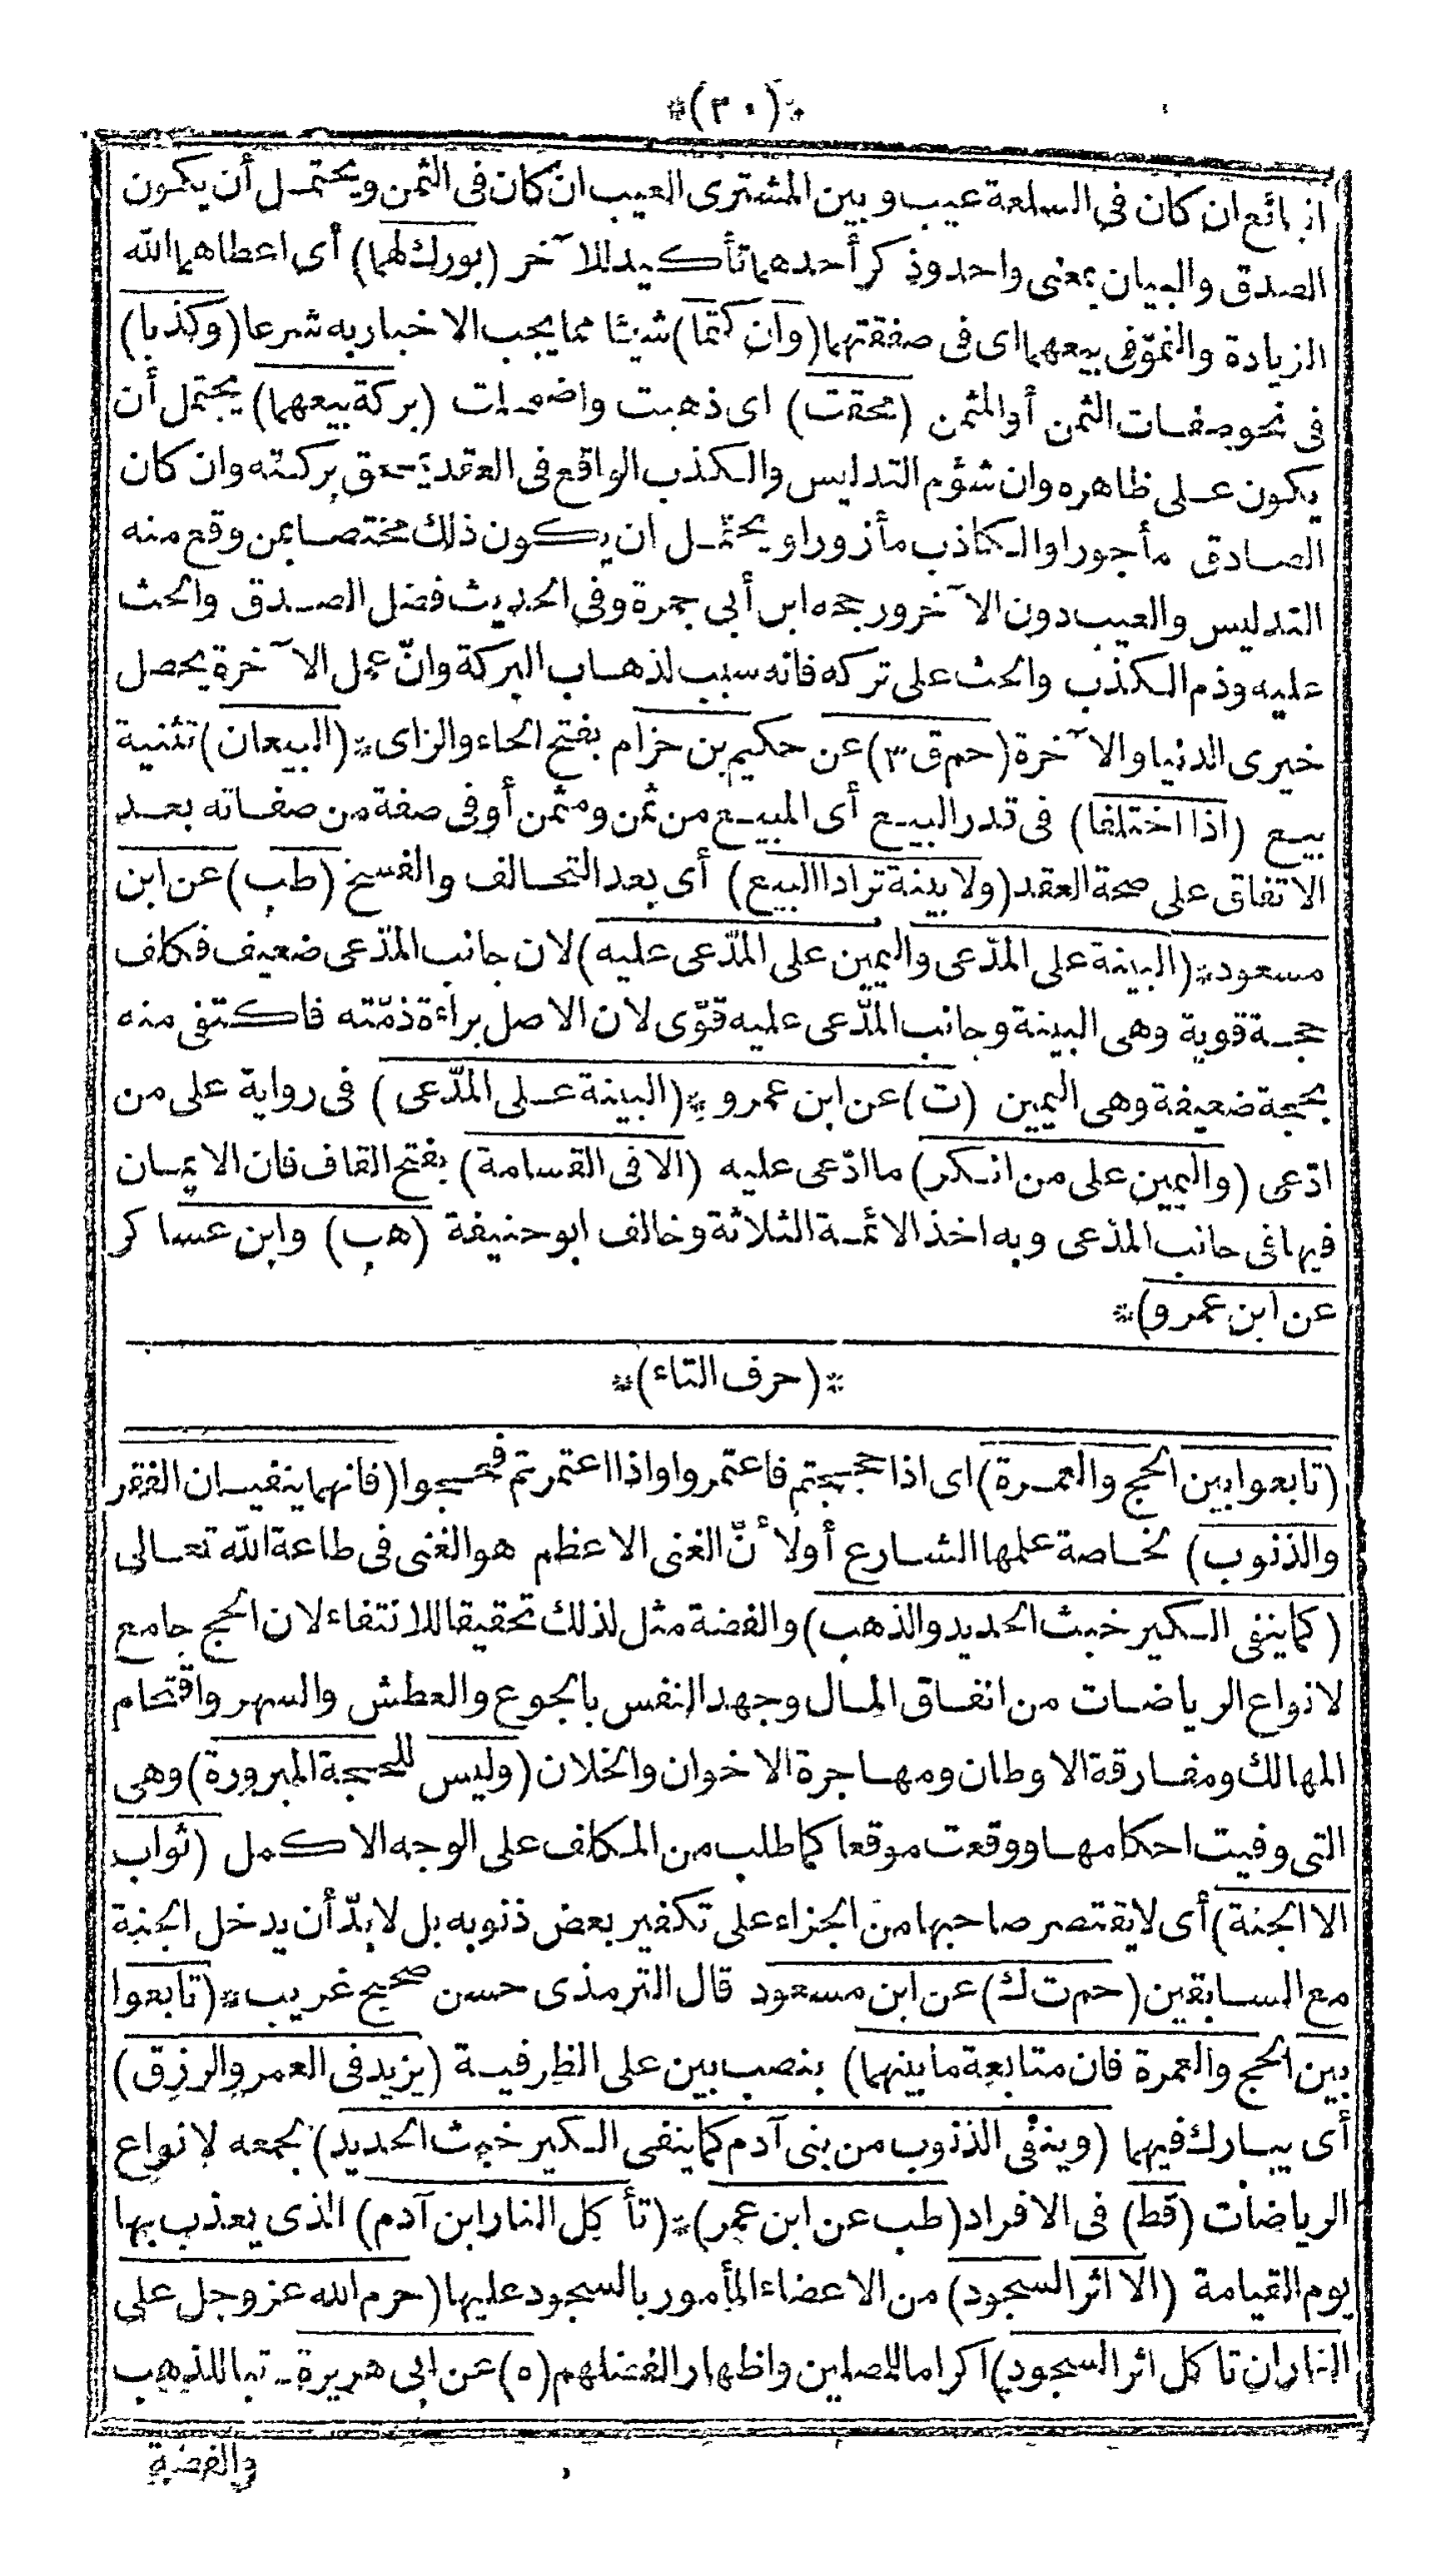 *(٣٠)*
ان كان فى السلعة عيب وبين المشترى العيب ان كان فى الثمن ويحتمل أن يكون
الصدق والبيان بمعنى واحد وذكر أحدهما تأكيد للآخر (بورك لهما) أى اعطاهما الله
الزيادة والنموّ فى بيعهما اى فى صفقتهما (وان كتما) شيئا مما يجب الاخبار به شرعا (وكذبا)
فى نحو صفات الثمن أو المثمن (محقت) اى ذهبت واضمحلت (بركة بيعهما) يحتمل أن
يكون على ظاهره وان شؤم التدليس والكذب الواقع فى العقد يمحق بركته وان كان
الصادق مأجورا والكاذب مأزورا ويحتمل ان يكون ذلك مختصا بمن وقع منه
التدليس والعيب دون الآخر ورجحه ابن أبى جمرة وفى الحديث فضل الصدق والحث
عليه وذم الكذب والحث على تركه فانه سبب لذهاب البركة وانّ عمل الآخرة يحصل
خيرى الدنيا والآخرة (حم ق ٣) عن حكيم بن حزام بفتح الحاء والزاى * (البيعان) تثنية
بيع (اذا اختلفا) فى قدر البيع أى المبيع من ثمن ومثمن أو فى صفة من صفاته بعد
الاتفاق على صحة العقد (ولا بينة ترادا البيع) أى بعد التحالف والفسخ (طب) عن ابن
مسعود * (البينة على المدّعى واليمين على المدّعى عليه) لان جانب المدّعى ضعيف فكلف
حجة قوية وهى البينة وجانب المدّعى عليه قوّى لان الاصل براءة ذمّته فاكتفى منه
بحجة ضعيفة وهى اليمين (ت) عن ابن عمرو * (البينة على المدّعى) فى رواية على من
ادّعى (واليمين على من انكر) ما ادّعى عليه (الا فى القسامة) بفتح القاف فان الايمان
فيها فى جانب المدّعى وبه اخذ الائمة الثلاثة وخالف ابو حنيفة (هب) وابن عساكر
عن ابن عمرو)*
*(حرف التاء)*
(تابعوا بين الحج والعمرة) اى اذا حججتم فاعتمروا واذا اعتمرتم فحجوا (فانهما ينفيان الفقر
والذنوب) لخاصة علمها الشارع أو لأنّ الغنى الاعظم هو الغنى فى طاعة الله تعالى
(كما ينفى الكير خبث الحديد والذهب) والفضة مثل لذلك تحقيقا للانتفاء لان الحج جامع
لانواع الرياضات من انفاق المال وجهد النفس بالجوع والعطش والسهر واقتحام
المهالك ومفارقة الاوطان ومهاجرة الاخوان والخلان (وليس للحجة المبرورة) وهى
التى وفيت احكامها ووقعت موقعا كما طلب من المكلف على الوجه الاكمل (ثواب
الا الجنة) أى لا يقتصر صاحبها من الجزاء على تكفير بعض ذنوبه بل لا بدّ أن يدخل الجنة
مع السابقين (حم ت ك) عن ابن مسعود قال الترمذى حسن صحيح غريب * (تابعوا
بين الحج والعمرة فان متابعة ما بينهما) بنصب بين على الظرفية (يزيد فى العمر والرزق)
أى يبارك فيهما (وينفى الذنوب من بنى آدم كما ينفى الكير خبث الحديد) لجمعه لانواع
الرياضات (قط) فى الافراد (طب عن ابن عمر) * (تأكل النار ابن آدم) الذى يعذب بها
يوم القيامة (الا اثر السجود) من الاعضاء المأمور بالسجود عليها (حرم الله عز وجل على
النار ان تاكل اثر السجود) اكراما للمصلين واظهارا لفضلهم (ه) عن ابى هريرة ـ تبا للذهب
والفضة